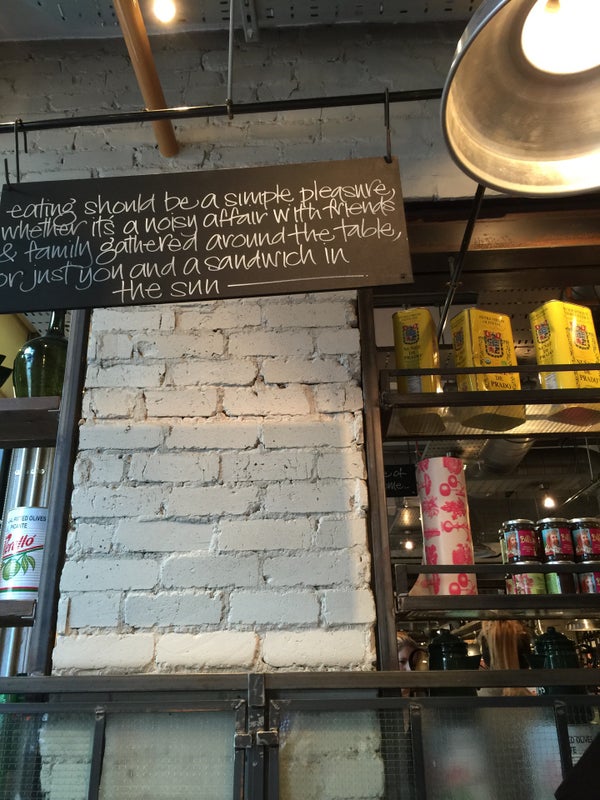 eating should be a simple pleasure,
whether it's a noisy affair with friends
& family gathered around the table,
or just you and a sandwich in
the sun
DE PRADO
DE PRADO
DE PRADO
OLIVES